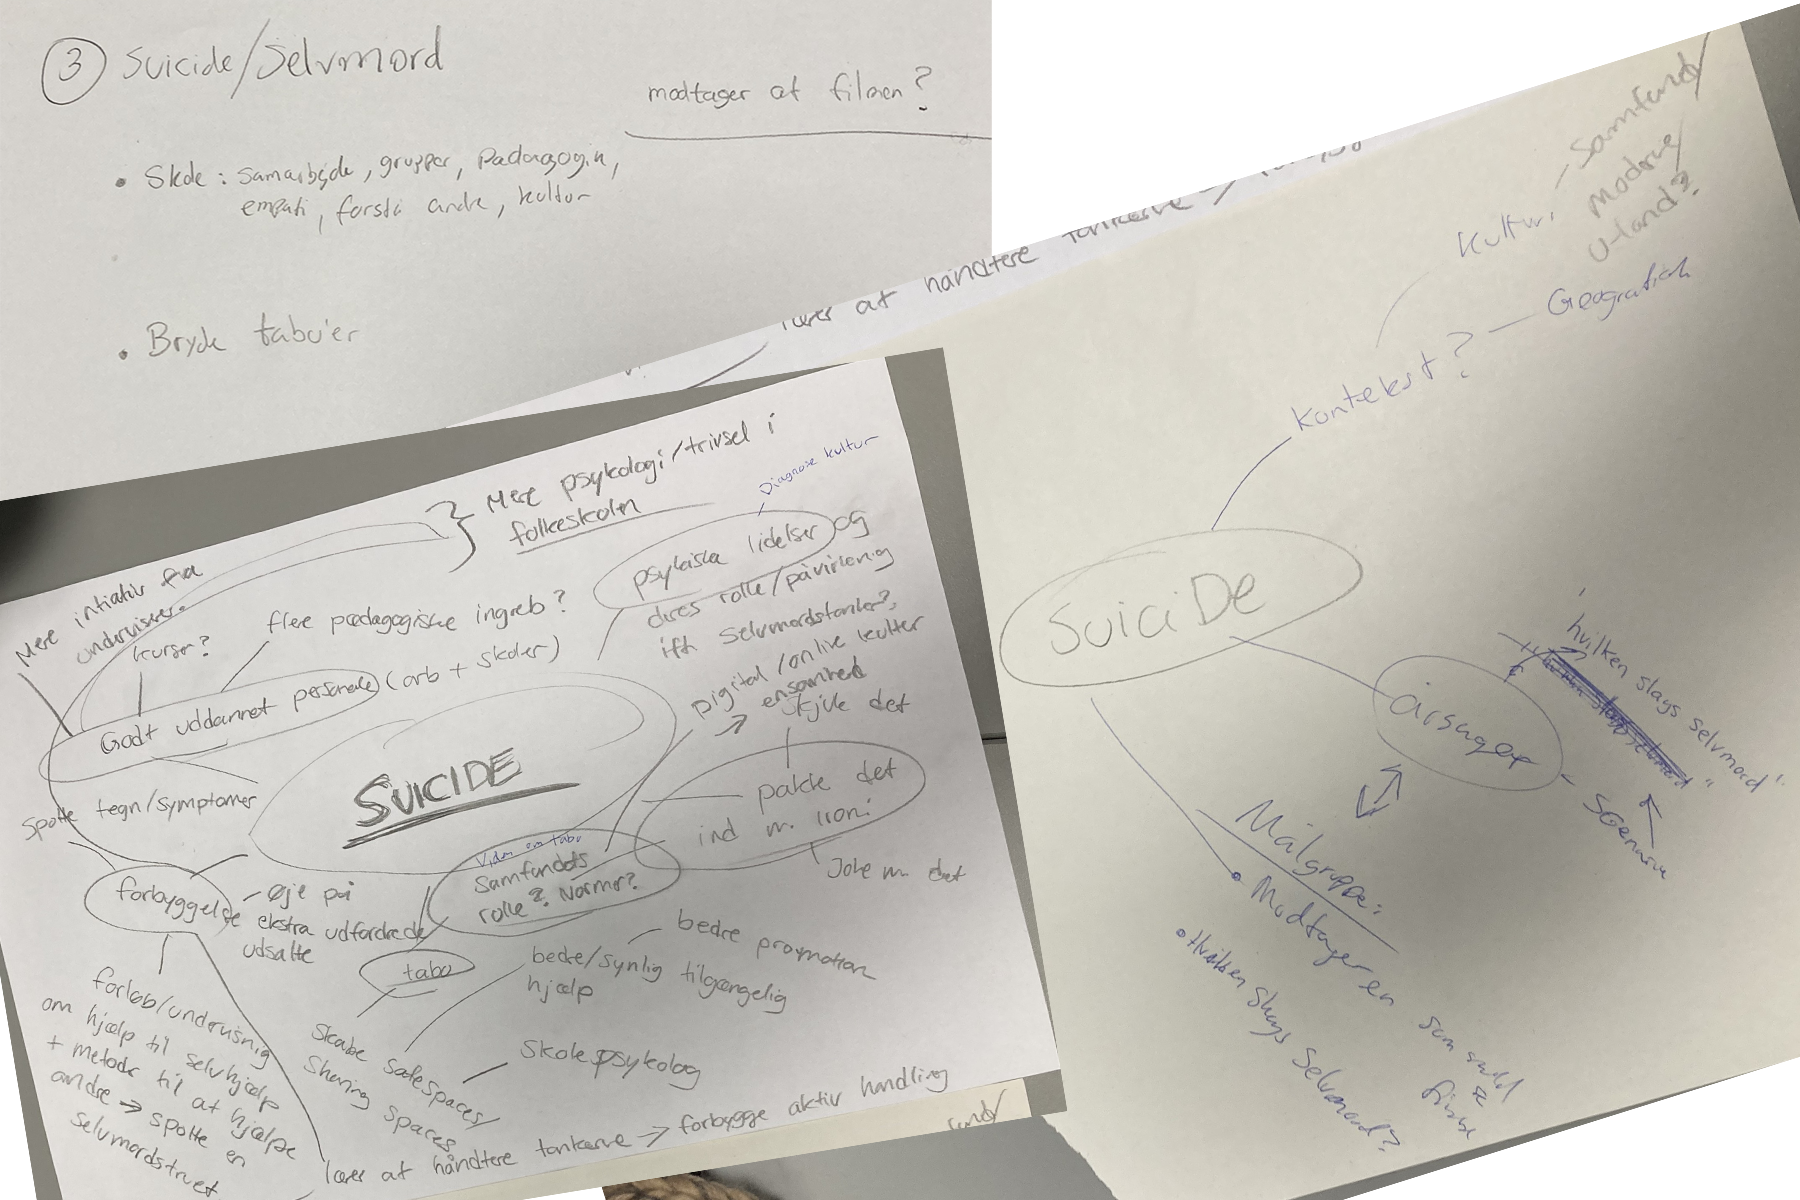 3 Suicide/Selvmord
modtager af filmen?
• Skole: samarbejde, grupper, Pædagogik,
empati, forstå andre, kultur
• Bryde tabu'er
lærer at håndtere tankerne
Mere psykologi/trivsel i
folkeskolen
Diagnose kultur
psykiske lidelser og
deres rolle/påvirkning
ift selvmordstanker?
Mere intiativ fra
underviser.
kurser?
flere pædagogiske ingreb?
Godt uddannet personale (arb + skoler)
Digital/online kultur
→ ensomhed
skjule det
SUICIDE
pakke det
ind m. ironi
Joke m. det
Spotte tegn/symptomer
Viden om tabu
Samfundets
rolle? Normer?
forbyggelse
- Øje på
ekstra udfordrede
udsatte
tabo
bedre/synlig tilgængelig
hjælp
bedre promotion
forløb/undervisning
om hjælp til selvhjælp
+ metode til at hjælpe
andre → spotte en
selvmordstruet
Skabe safespaces/
Sharing spaces
Skolepsykolog
lærer at håndtere tankerne → forbygge aktiv handling
Samfund/
Moderne/
U-land?
Kultur.
Geografisk
kontekst?
SuiciDe
årsager
hvilken slags selvmord"
Scenarie
Målgruppe:
• Modtageren som skal
se
filmen
• Hvilken slags Selvmord?